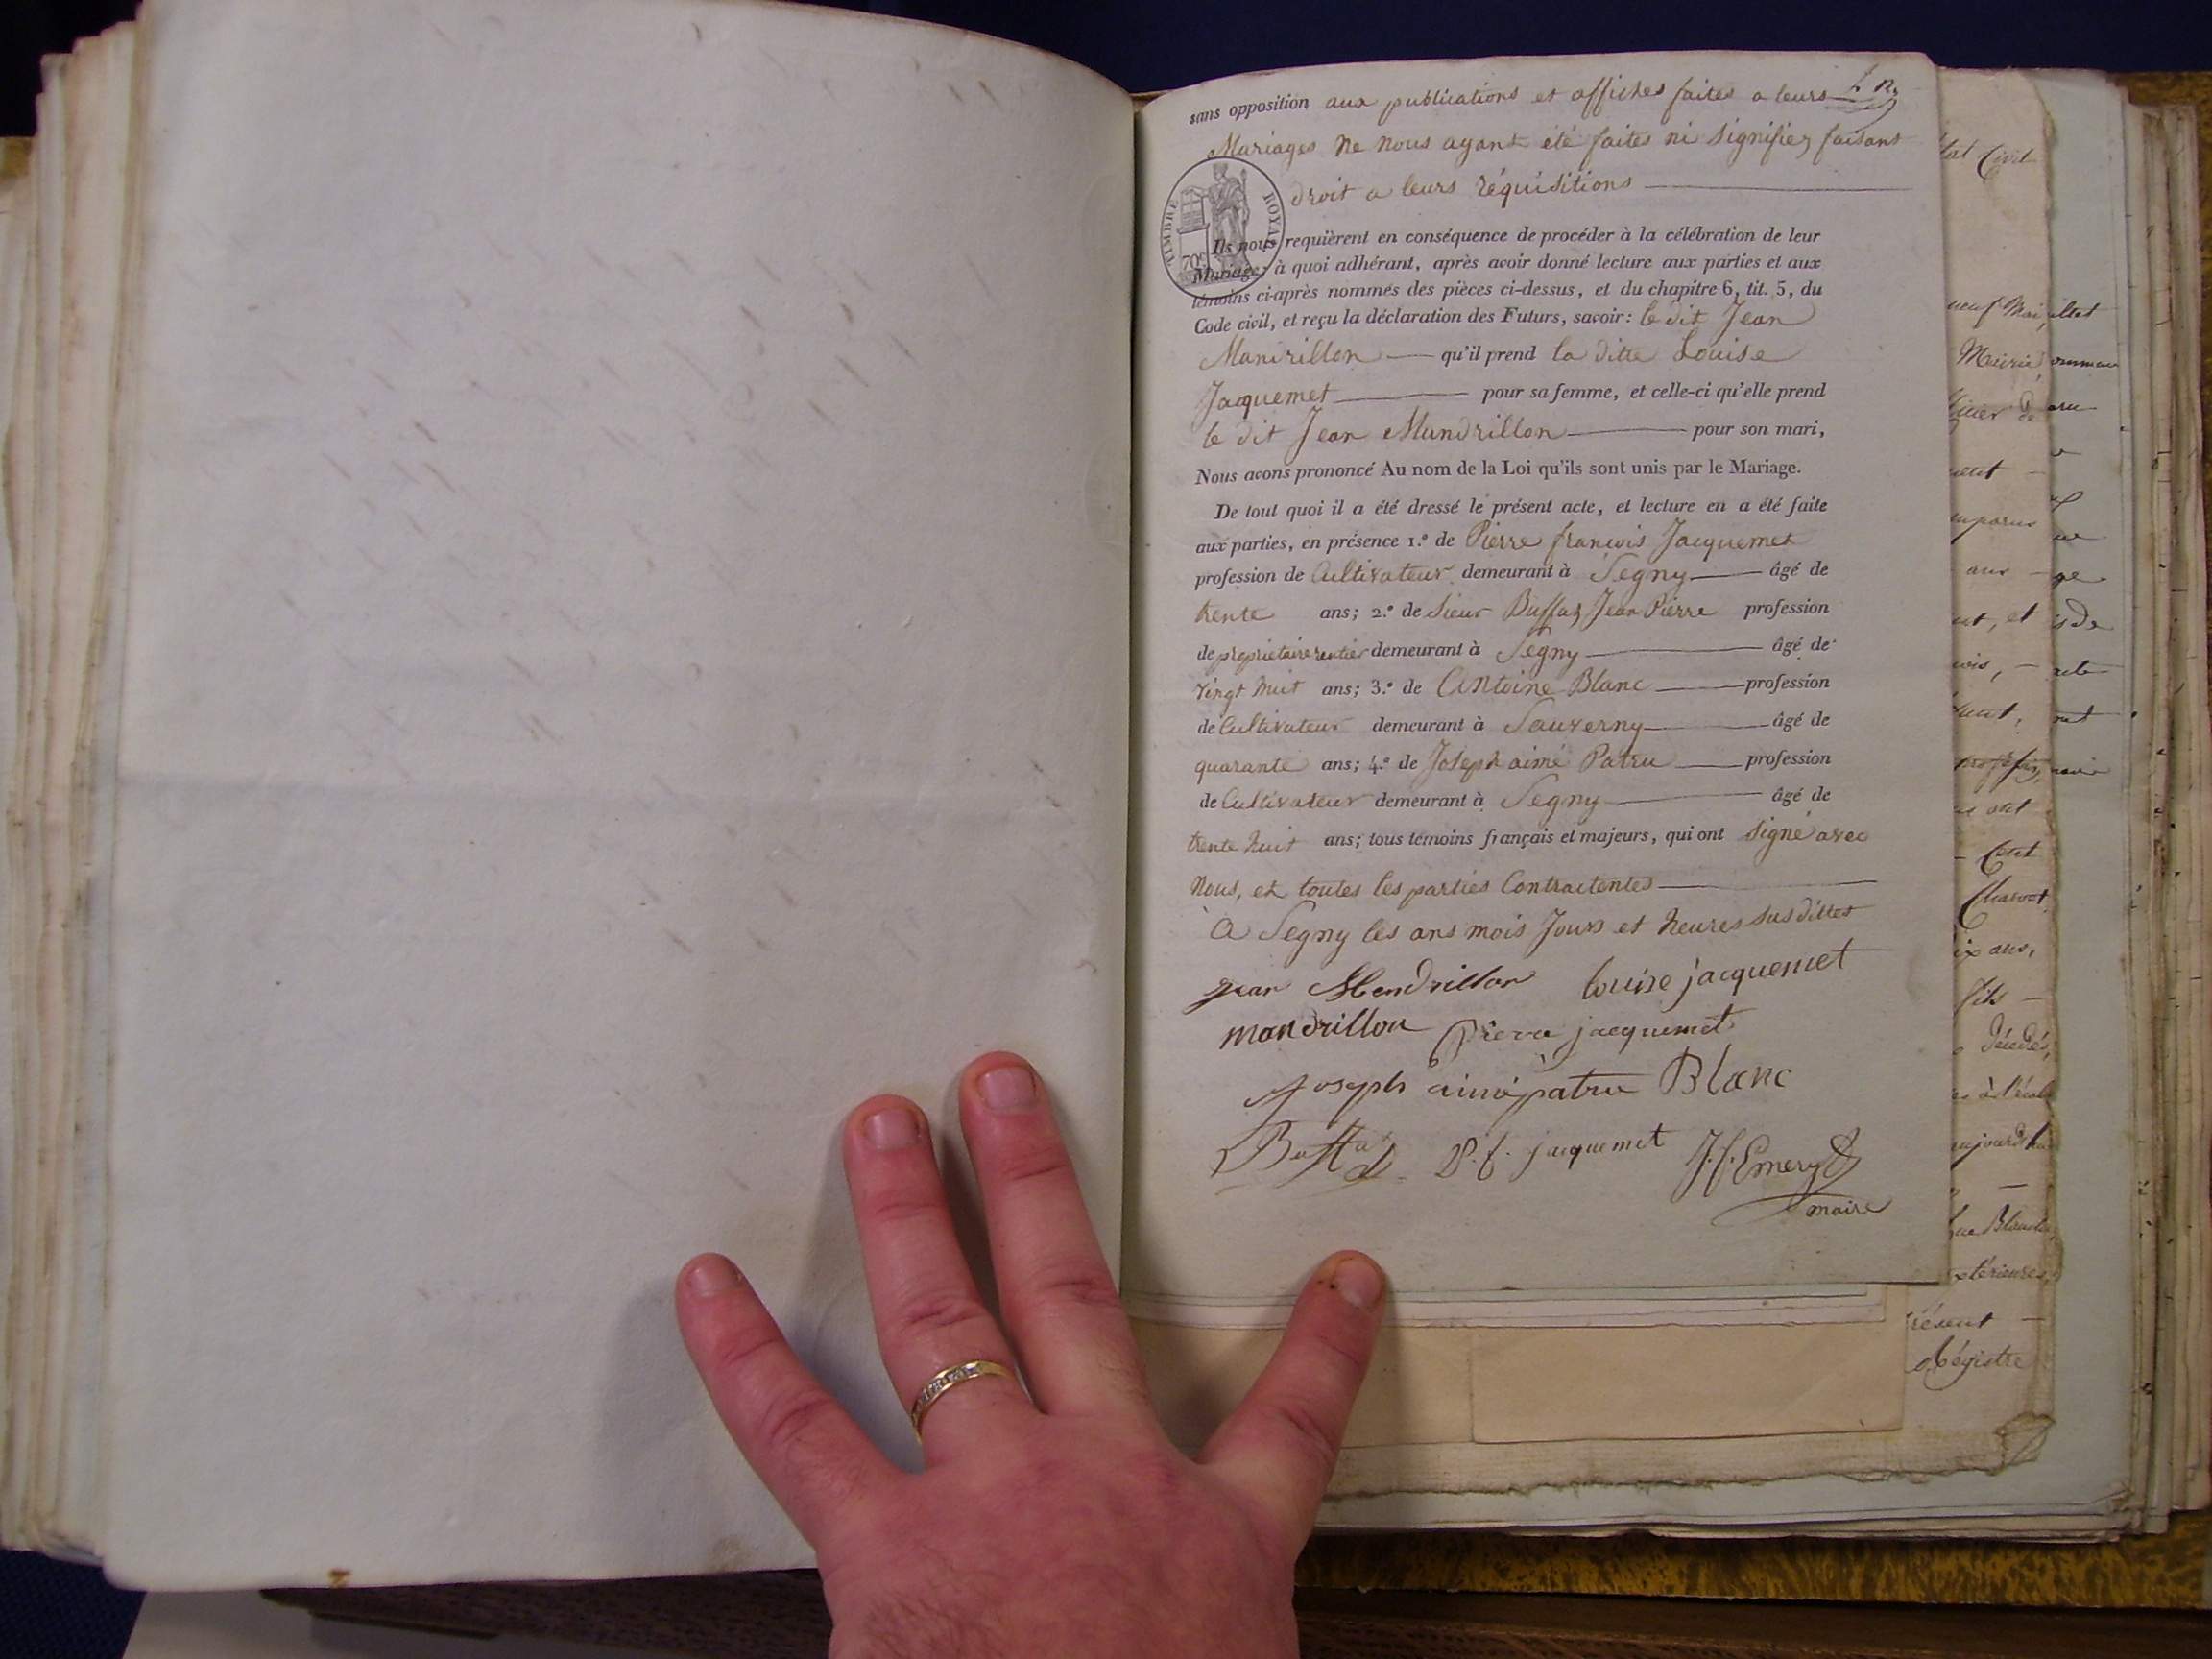 sans opposition aux publications et affiches faites a leurs
Mariages ne nous ayant été faites ni signifiez faisant
droit a leurs réquisitions
TIMBRE ROYAL
70c
Ils nous requièrent en conséquence de procéder à la célébration de leur
Mariage; à quoi adhérant, après avoir donné lecture aux parties et aux
témoins ci-après nommés des pièces ci-dessus, et du chapitre 6, tit. 5, du
Code civil, et reçu la déclaration des Futurs, savoir: le dit Jean
Mandrillon qu'il prend la ditte Louise
Jacquemet pour sa femme, et celle-ci qu'elle prend
le dit Jean Mandrillon pour son mari,
Nous avons prononcé Au nom de la Loi qu'ils sont unis par le Mariage.
De tout quoi il a été dressé le présent acte, et lecture en a été faite
aux parties, en présence 1.º de Pierre francois Jacquemet
profession de Cultivateur demeurant à Segny âgé de
trente ans; 2.º de Sieur Buffaz Jean Pierre profession
de propriétaire rentier demeurant à Segny âgé de
vingt huit ans; 3.º de Antoine Blanc profession
de Cultivateur demeurant à Sauverny âgé de
quarante ans; 4.º de Joseph aimé Patru profession
de Cultivateur demeurant à Segny âgé de
trente huit ans; tous témoins français et majeurs, qui ont signé avec
nous, et toutes les parties Contractentes
A Segny les ans mois Jours et heures sus dittes
jean Mendrillon louise jacquemet
mandrillon pierre jacquemet
joseph aimé patru Blanc
Buffaz P. f. jacquemet J. f. Emery
maire
État Civil
neuf Mai
Mairie
ans
ut, et
ont
Cetet
Charvet
ix ans,
fils
décédés,
aujourdhui
rue Blanche
extérieures,
présent
Régistre